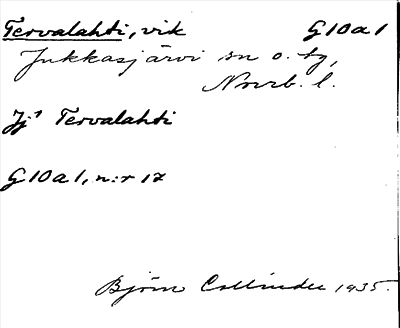 Tervalahti, vik G10a1
Jukkasjärvi sn o. tg,
Norrb. l.
Jj¹ Tervalahti
G10a1, n:r 17
Björn Collinder 1935.